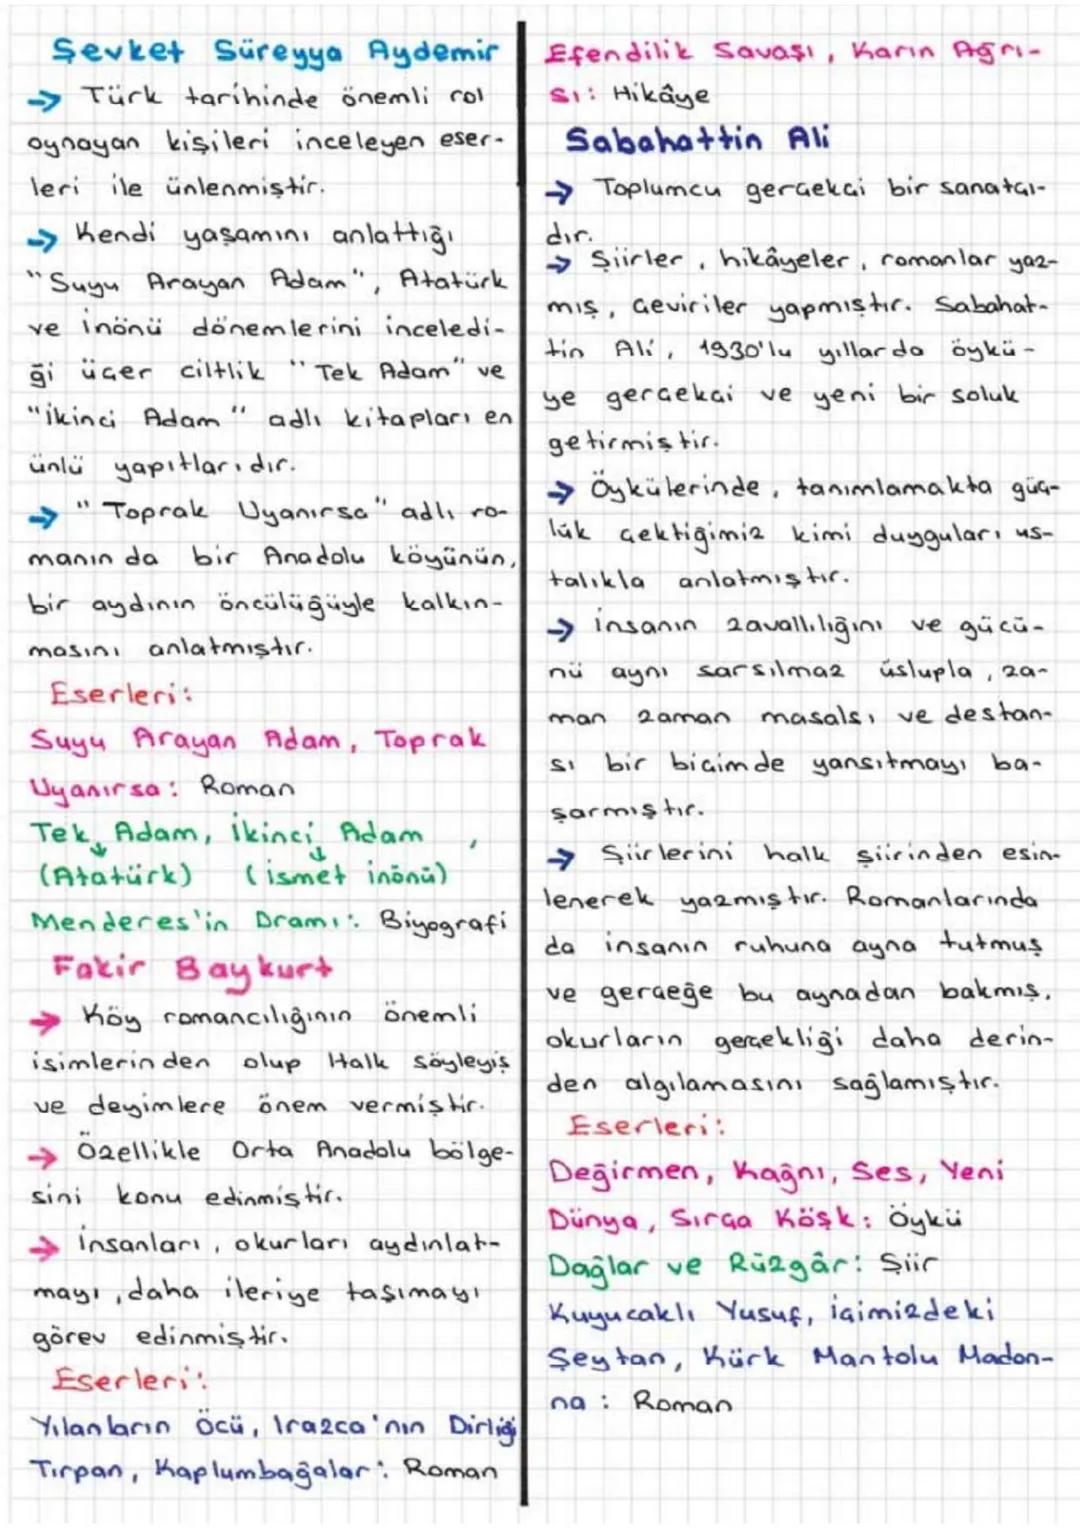 Şevket Süreyya Aydemir
→ Türk tarihinde önemli rol
oynayan kişileri inceleyen eser-
leri ile ünlenmiştir.
→ Kendi yaşamını anlattığı
"Suyu Arayan Adam", Atatürk
ve İnönü dönemlerini inceledi-
ği üçer ciltlik "Tek Adam" ve
"İkinci Adam" adlı kitapları en
ünlü yapıtlarıdır.
→ "Toprak Uyanırsa" adlı ro-
manında bir Anadolu köyünün,
bir aydının öncülüğüyle kalkın-
masını anlatmıştır.
Eserleri:
Suyu Arayan Adam, Toprak
Uyanırsa: Roman
Tek Adam, İkinci Adam,
(Atatürk) (İsmet İnönü)
Menderes'in Dramı: Biyografi
Fakir Baykurt
→ Köy romancılığının önemli
isimlerinden olup Halk söyleyiş
ve deyimlere önem vermiştir.
→ Özellikle Orta Anadolu bölge-
sini konu edinmiştir.
→ İnsanları, okurları aydınlat-
mayı, daha ileriye taşımayı
görev edinmiştir.
Eserleri:
Yılanların Öcü, Irazca'nın Dirliği
Tırpan, Kaplumbağalar: Roman
Efendilik Savaşı, Karın Ağrı-
sı: Hikâye
Sabahattin Ali
→ Toplumcu gerçekçi bir sanatçı-
dır.
→ Şiirler, hikâyeler, romanlar yaz-
mış, çeviriler yapmıştır. Sabahat-
tin Ali, 1930'lu yıllarda öykü-
ye gerçekçi ve yeni bir soluk
getirmiştir.
→ Öykülerinde, tanımlamakta güç-
lük çektiğimiz kimi duyguları us-
talıkla anlatmıştır.
→ İnsanın zavallılığını ve gücü-
nü aynı sarsılmaz üslupla, za-
man zaman masalsı ve destan-
sı bir biçimde yansıtmayı ba-
şarmıştır.
→ Şiirlerini halk şiirinden esin-
lenerek yazmıştır. Romanlarında
da insanın ruhuna ayna tutmuş
ve gerçeğe bu aynadan bakmış,
okurların gerçekliği daha derin-
den algılamasını sağlamıştır.
Eserleri:
Değirmen, Kağnı, Ses, Yeni
Dünya, Sırça Köşk: Öykü
Dağlar ve Rüzgâr: Şiir
Kuyucaklı Yusuf, İçimizdeki
Şeytan, Kürk Mantolu Madon-
na: Roman